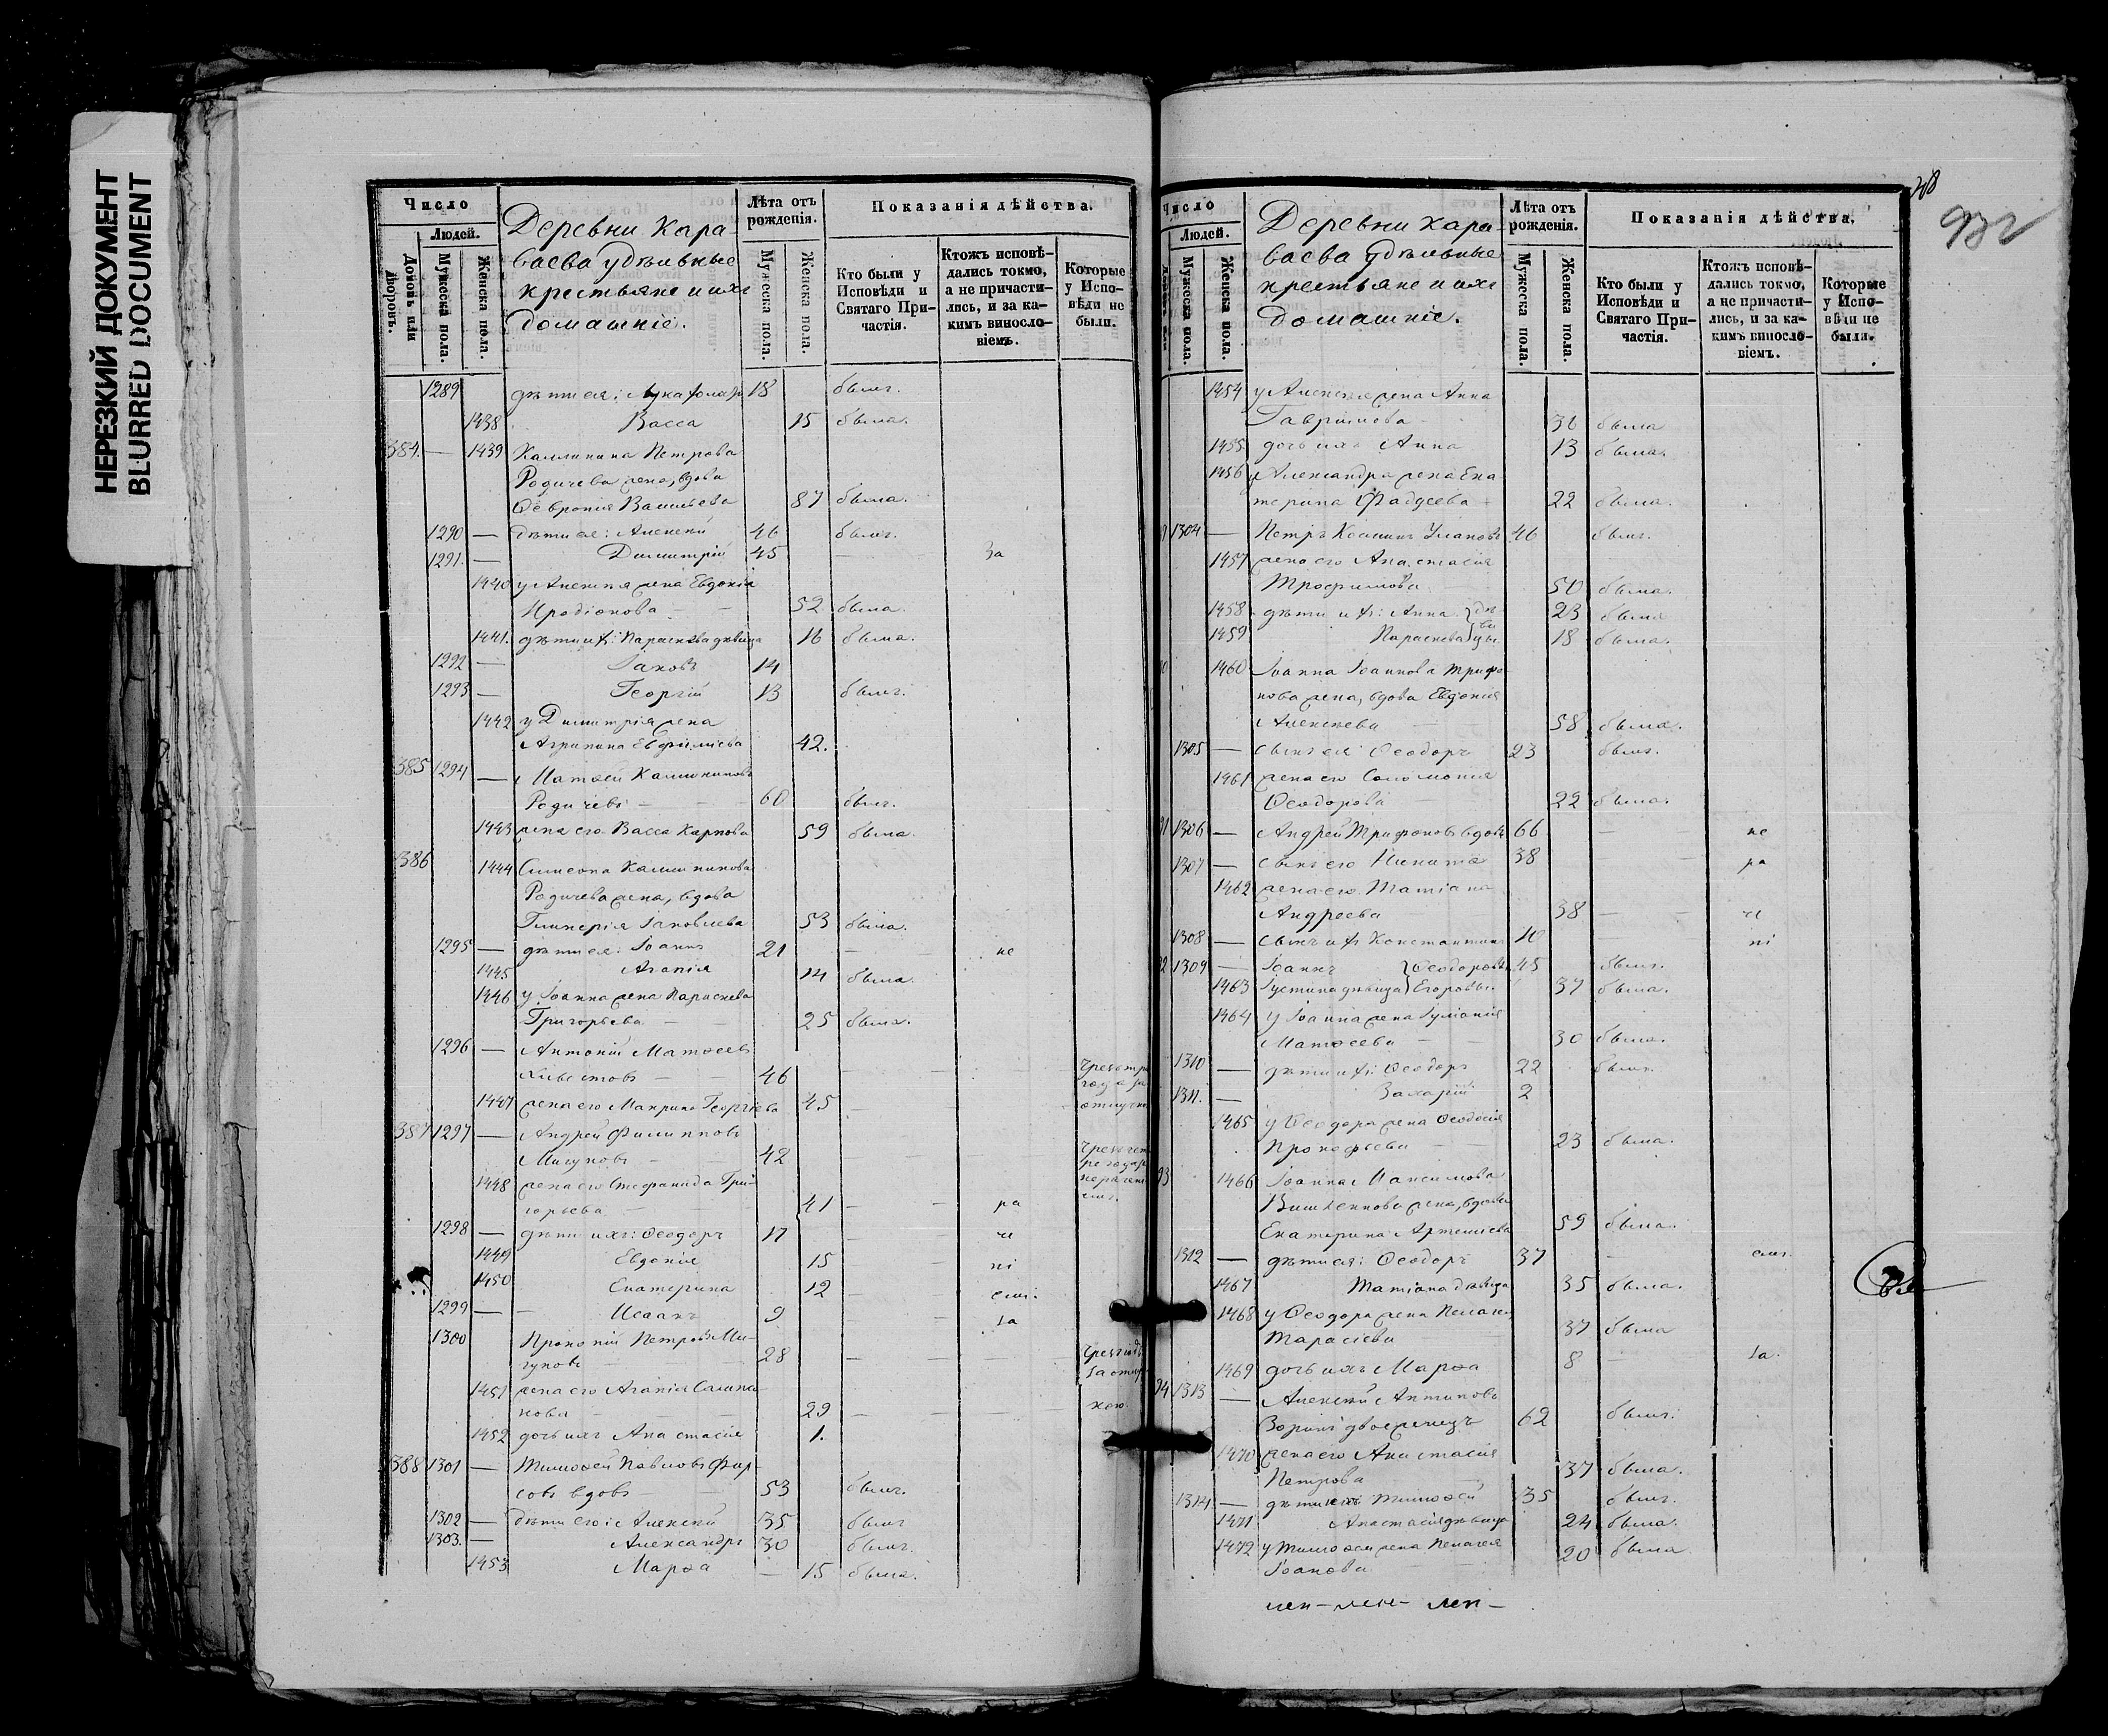 НЕРЕЗКИЙ ДОКУМЕНТ
BLURRED DOCUMENT
Число
Людей.
Домовъ или дворовъ.
Мужеска пола.
Женска пола.
Деревни Кара-
баева удѣльные
крестьяне и ихъ
домашніе.
Лѣта отъ рожденія.
Мужеска пола.
Женска пола.
Показанія дѣйства.
Кто были у Исповѣди и Святаго Причастія.
Ктожъ исповѣдались токмо, а не причастились, и за какимъ винословіемъ.
Которые у Исповѣди не были.
1289 дѣти ея: Лука 18 былъ.
1438 Васса 15 была.
384. — 1439 Каллиника Петрова
Родичева жена, вдова
Ѳевронія Васильева 87 была.
1290 — дѣти ея: Алексѣй 46 былъ.
1291. — Димитрій 45 — за
1440 у Алексѣя жена Евдокія
Иродіонова — — 52 была.
1441. дѣти ихъ: Параскева дѣвица 16 была.
1292 — Іаковъ 14
1293 — Георгій 13 былъ.
1442 у Димитрія жена
Агрипина Евфиміева 42.
385 1294 — Матѳей Каллиниковъ
Родичевъ — — 60 былъ.
1443 жена его Васса Карпова 59 была.
386 1444 Симеона Каллиникова
Родичева жена, вдова
Гликерія Іаковлева 53 была.
1295 — дѣти ея: Іоаннъ 21 — не
1445 Агапія 14 была.
1446 у Іоанна жена Параскева
Григорьева — — 25 была.
1296 — Антоній Матѳеевъ
— — 46 — — —
1447 жена его Макрина Георгіева 45 — —
387 1297 — Андрей Филипповъ
Мигуновъ — — 42 — — —
1448 жена его Стефанида Гри-
горьева — — 41 — — ра
1298 — дѣти ихъ: Ѳеодоръ 17 — че
1449 Евдокія 15 — ні
1450 Екатерина 12 — емъ.
1299 — — Исаакъ 9 — за
1300 Прокопій Петровъ Ми-
гуновъ — — 28 — — —
1451 жена его Агапія
нова — — 29 — — —
1452 дочь ихъ Анастасія 1.
388 1301 — Тимоѳей Павловъ Фир-
совъ вдовъ — 53 былъ.
1302 — дѣти его: Алексѣй 35 былъ
1303. — Александръ 30 былъ.
1453 Марѳа — 15 была.
932
Число
Людей.
Мужеска пола.
Женска пола.
Деревни Кара-
баева удѣльные
крестьяне и ихъ
домашніе.
Лѣта отъ рожденія.
Мужеска пола.
Женска пола.
Показанія дѣйства.
Кто были у Исповѣди и Святаго Причастія.
Ктожъ исповѣдались токмо, а не причастились, и за какимъ винословіемъ.
Которые у Исповѣди не были.
1454 у Алексѣя жена Анна
Гавриилова — была
1455 дочь ихъ Анна 13 была.
1456 у Александра жена Ека-
терина Фаддеева 22 была.
1304 — Петръ Косминъ Улановъ 46 былъ.
1457 жена его Анастасія
Трофимова 50 была.
1458 дѣти ихъ: Анна 23 была
1459 Параскева 18 была.
1460 Іоанна Іоаннова Трифо-
нова жена, вдова Евдокія
Алексѣева — — 58 была.
1305 — сынъ ея Ѳеодоръ 23 былъ.
1461 жена его Соломонія
Ѳеодорова — 22 была.
1306 — Андрей Трифоновъ вдовъ 66 — не
1307 — сынъ его Никита 38 — ра
1462 жена его Татіана
Андреева 38 — че
1308 — сынъ ихъ Константинъ 10 — ні
1309 — Іоаннъ Ѳеодоровъ 45 былъ.
1463 Іустина дѣвица Егоровы 37 была.
1464 у Іоанна жена Іуліанія
Матѳеева — — 30 была.
1310 — дѣти ихъ: Ѳеодоръ 22 былъ.
1311. — Захарій 2
1465 у Ѳеодора жена Ѳеодосія
Прокофьева — — 23 была.
1466 Іоанна Максимова
жена, вдова
Екатерина Артеміева 59 была.
1312 — дѣти ея: Ѳеодоръ 37 — емъ.
1467 Татіана дѣвица 35 была.
1468 у Ѳеодора жена Пелагея
Тарасіева — 37 была
1469 дочь ихъ Марѳа 8 — за.
1313 — Алексѣй Антиповъ
Зоринъ двоеженецъ 62 былъ.
1470 жена его Анастасія
Петрова — 37 была.
1314 — дѣти ихъ Тимоѳей 35 былъ.
1471 Анастасія дѣвица 24 была.
1472 у Тимоѳея жена Пелагея 20 была
Іоанова